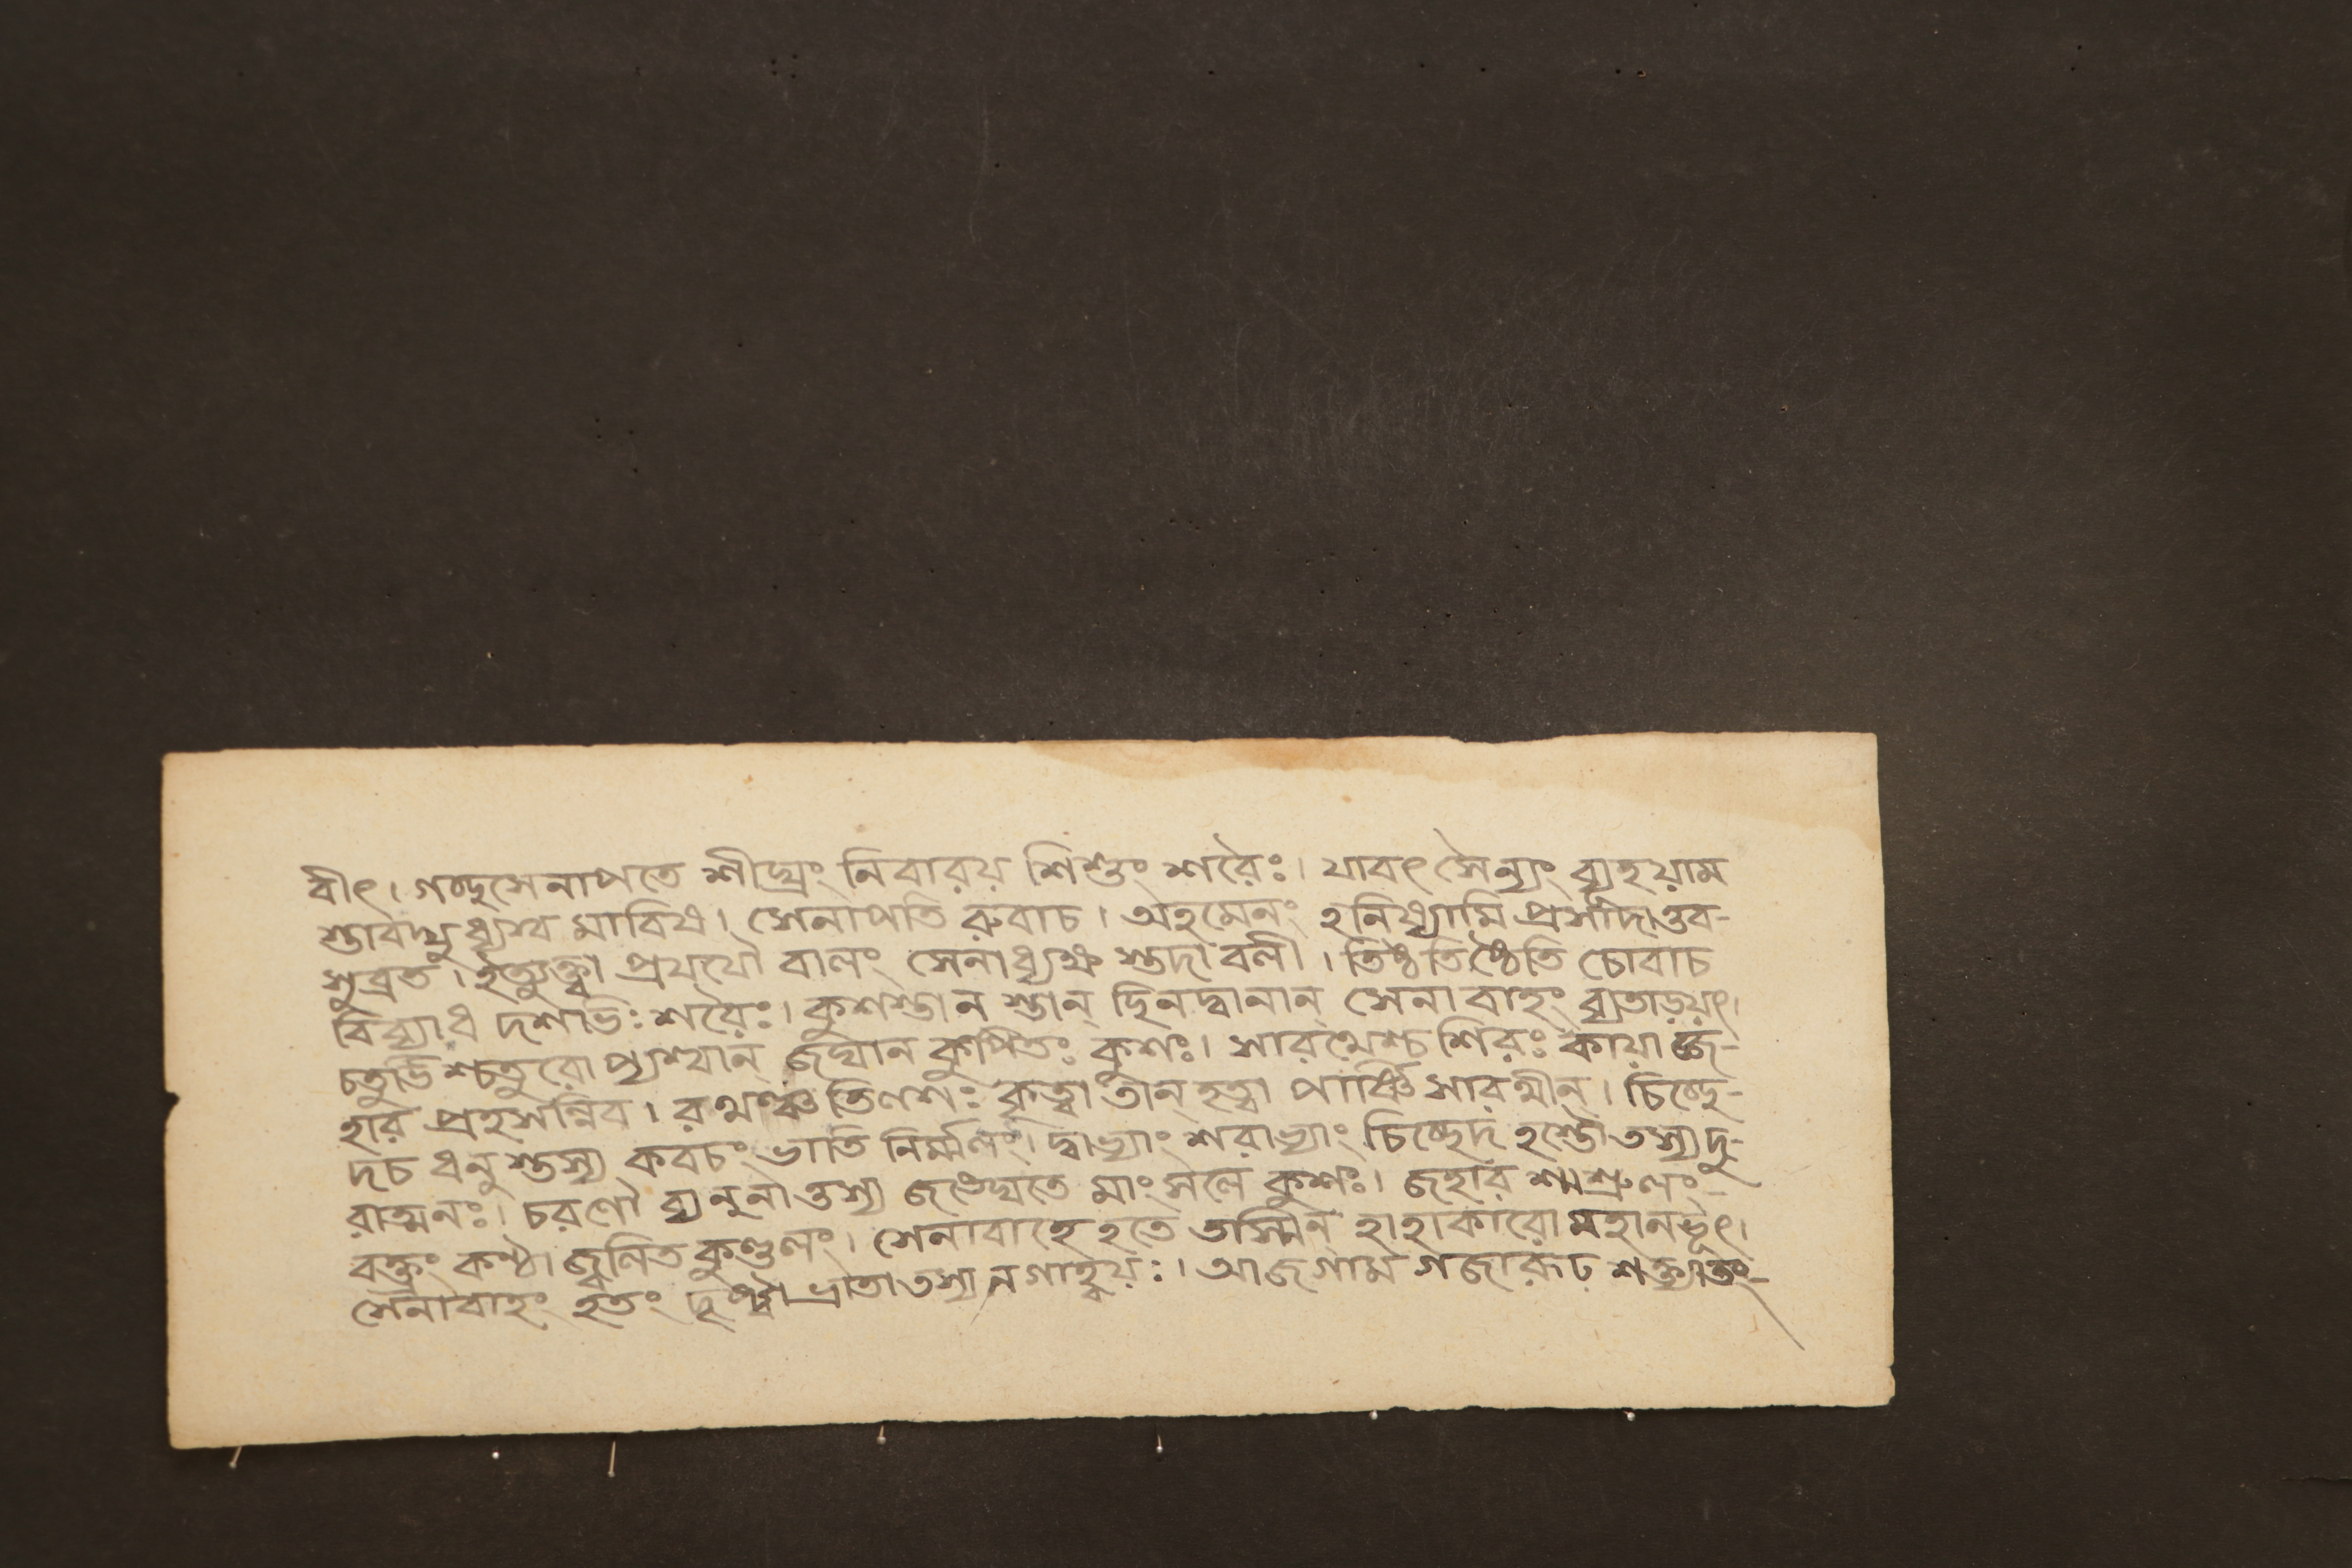 বীৎ। গচ্ছসেনাপতে শীঘ্রং নিবারয় শিশুং শরৈঃ। যাবৎ সৈন্যং ব্যূহয়াম
স্তাবদ্যুধ্যস্ব মাবিথ। সেনাপতি রুবাচ। অহমেনং হনিষ্যামি প্রসাদাত্তব-
সুব্রত। ইত্যুক্ত্বা প্রযযৌ বালং সেনাধ্যক্ষ স্তদা বলী। তিষ্ঠতিষ্ঠেতি চোবাচ
বিব্যাধ দশভিঃ শরৈঃ। কুশস্তান স্তান্ ছিনদ্বানান্ সেনা বাহং ব্যতাড়য়ৎ।
চতুর্ভিশ্চতুরো প্যশ্বান্ জঘান কুপিতঃ কুশঃ। সারথেশ্চ শিরঃ কায়াজ্জ-
হার প্রহসন্নিব। রথঞ্চ তিলশঃ কৃত্বা তান্ হত্বা পার্ষ্ণিসারথীন্। চিচ্ছে-
দচ ধনুস্তস্য কবচং ভাতি নির্ম্মলং। দ্বাভ্যাং শরাভ্যাং চিচ্ছেদ হস্তৌ তস্যদু-
রাত্মনঃ। চরণৌ ব্যনুনাত্তস্য জঙ্ঘেতে মাংসলে কুশঃ। জহার শ্মশ্রুলং-
বক্ত্রং কণ্ঠা জ্বলিত কুণ্ডলং। সেনাবাহে হতে তস্মিন্ হাহাকারো মহানভূৎ।
সেনাবাহং হতং দৃষ্ট্বা ভ্রাতা তস্য নগাহ্বয়ঃ। আজগাম গজারূঢ় শক্ত্যাতং-